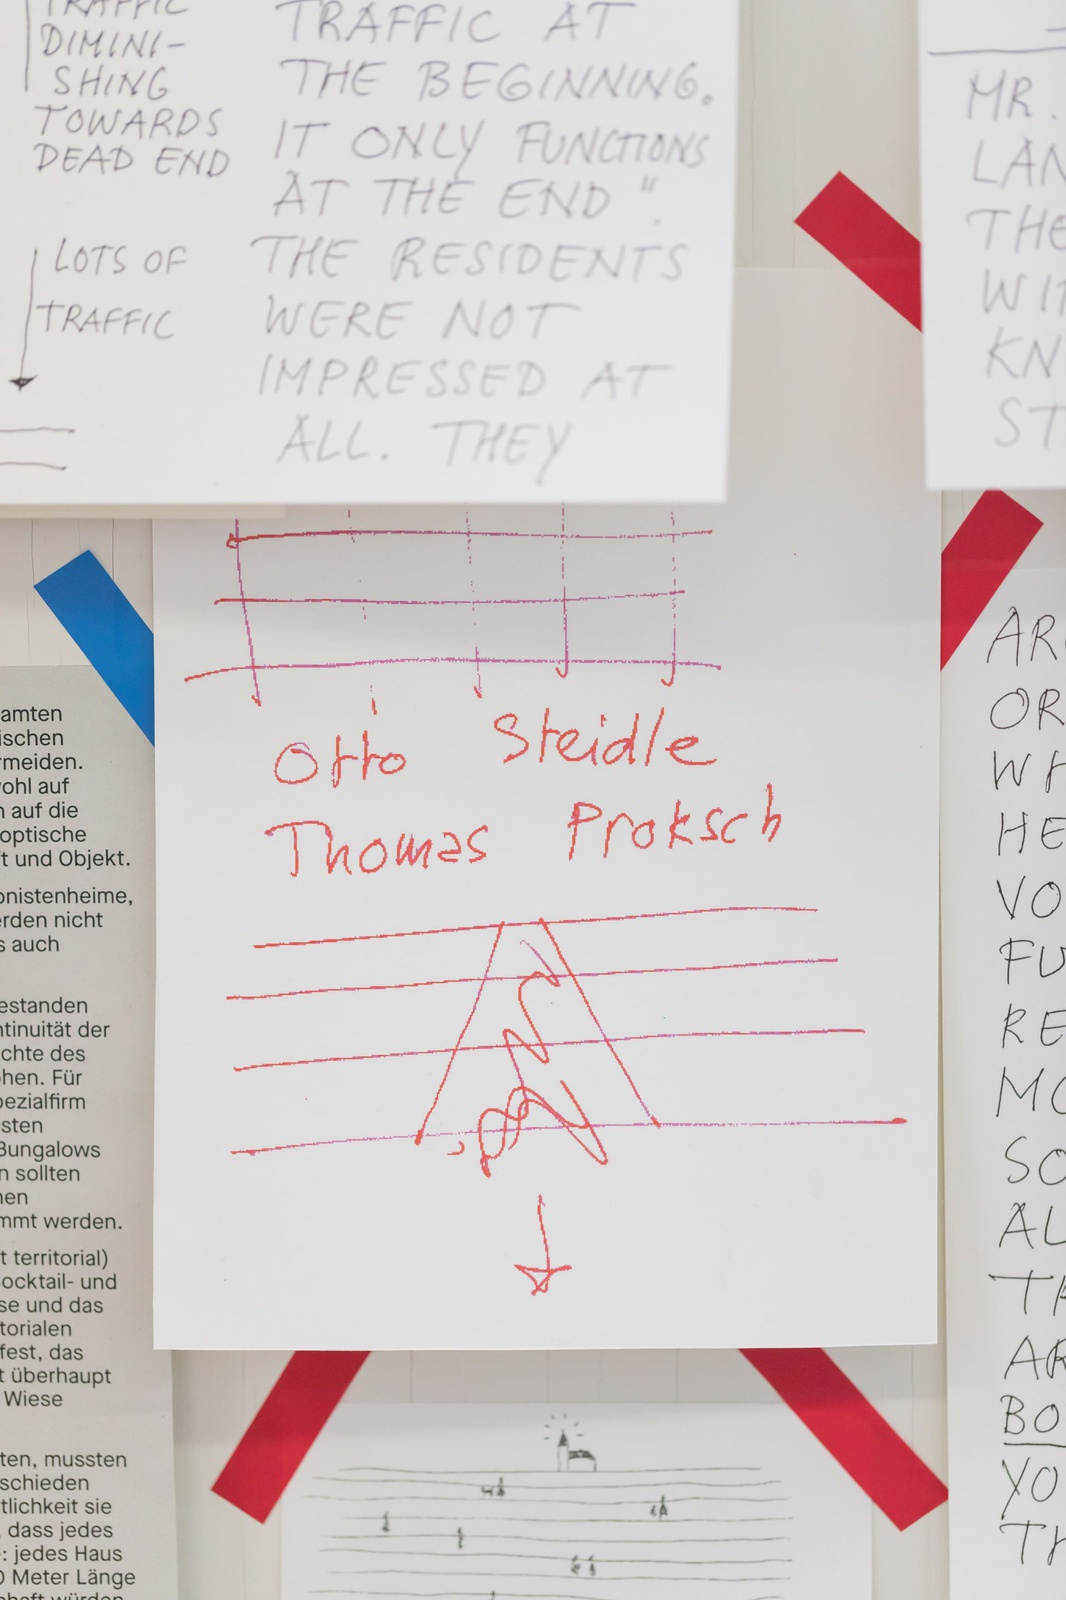 TRAFFIC
DIMINI-
SHING
TOWARDS
DEAD END
LOTS OF
TRAFFIC
TRAFFIC AT
THE BEGINNING.
IT ONLY FUNCTIONS
AT THE END".
THE RESIDENTS
WERE NOT
IMPRESSED AT
ALL. THEY
MR.
LAN
THE
WIT
KN
ST
Otto Steidle
Thomas Proksch
amten
ischen
rmeiden.
wohl auf
n auf die
optische
ft und Objekt.
onistenheime,
erden nicht
s auch
estanden
ntinuität der
chte des
ohen. Für
pezialfirm
sten
Bungalows
n sollten
nen
mmt werden.
t territorial)
Cocktail- und
se und das
torialen
fest, das
t überhaupt
Wiese
ten, mussten
schieden
tlichkeit sie
, dass jedes
e: jedes Haus
0 Meter Länge
chaft würden
ARC
OR
WH
HE
VO
FU
RE
MO
SO
AL
TH
AR
BO
YO
TH